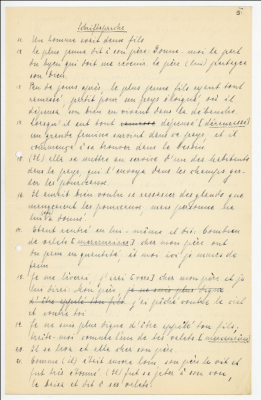 11. Un homme avait deux fils.
12. Le plus jeune dit à son père: Donne-moi la part
du bien qui doit me revenir. Le père (leur) partagea
son bien.
13. Peu de jours après, le plus jeune fils ayant tout
ramassé, partit pour un pays éloigné, où il
dépensa son bien en vivant dans la débauche.
14. Lorsqu'il eut tout dépensé
une grande famine survint dans ce pays, et il
commença à se trouver dans le besoin
15. (Il) alla se mettre au service d'un des habitants
dans le pays, qui l'envoya dans les champs gar-
der les pourceaux.
16. Il aurait bien voulu se rassasier des
mangeaient les pourceaux, mais personne ne
lui donna.
17. Étant rentré en lui-même il dit: Combien
de valets chez mon père ont
du pain en quantité, et moi ici je meurs de
faim
18. Je me lèverai, j'irai chez mon père et je
lui dirai: Mon père
j'ai péché contre le ciel
et contre toi
19. Je ne suis plus digne d'être appelé ton fils,
traite-moi comme l'un de tes valets
20. Il se leva et alla chez son père.
Comme (il) était encore loin, son père le vit et
fut très (Il) fut se jeter à son cou,
le baisa et dit